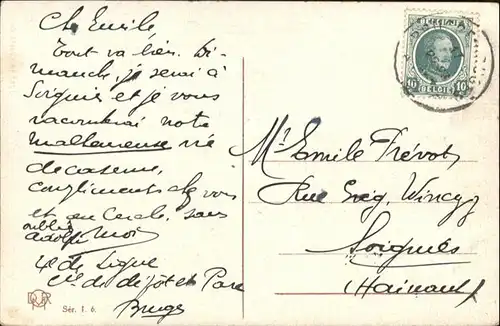 Ch Emile
Tout va bien. Di-
manche, je serai à
Soignies et je vous
raconterai notre
malheureuse vie
de caserne,
compliments chez vous
et au Cercle, sans
oublier
Adolphe Moi
4e de Ligne
Cie de dépôt et Parc
Bruges
Sér. 1. 6.
BELGIE
10 10
Mr Emile Prévot
Rue Grég. Wincqz
Soignies
(Hainaut)